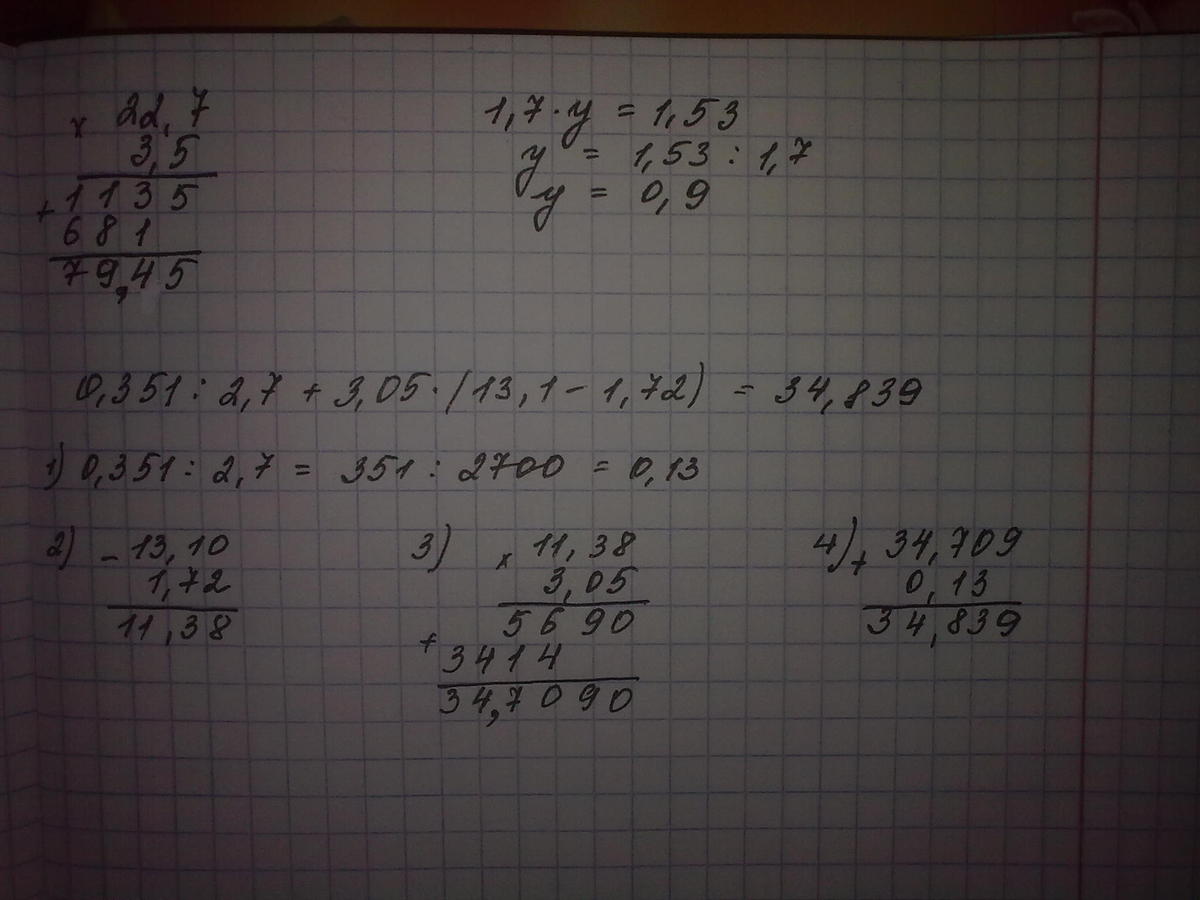 × 22,7
3,5
+ 1135
681
79,45
1,7 · y = 1,53
y = 1,53 : 1,7
y = 0,9
0,351 : 2,7 + 3,05 · (13,1 - 1,72) = 34,839
1) 0,351 : 2,7 = 351 : 2700 = 0,13
2) - 13,10
1,72
11,38
3) × 11,38
3,05
5690
+ 3414
34,7090
4) + 34,709
0,13
34,839